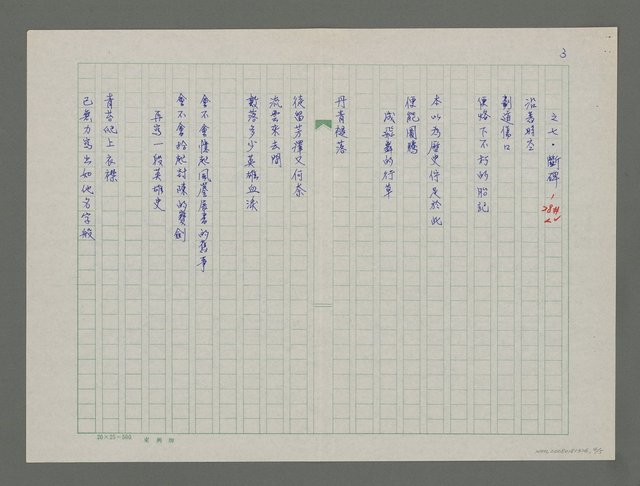 3
之七·斷碑
沿著時空
劃道傷口
便烙下不朽的胎記
本以為歷史佇足於此
便能圖騰
成飛舞的行草
丹青褪落
徒留芳澤又何奈
流雲來去間
數落多少英雄血淚
會不會憶起風簷展書的舊事
會不會拾起封陳的雙劍
再寫一段英雄史
青苔爬上衣襟
已無力寫出如池名字般
20×25=500